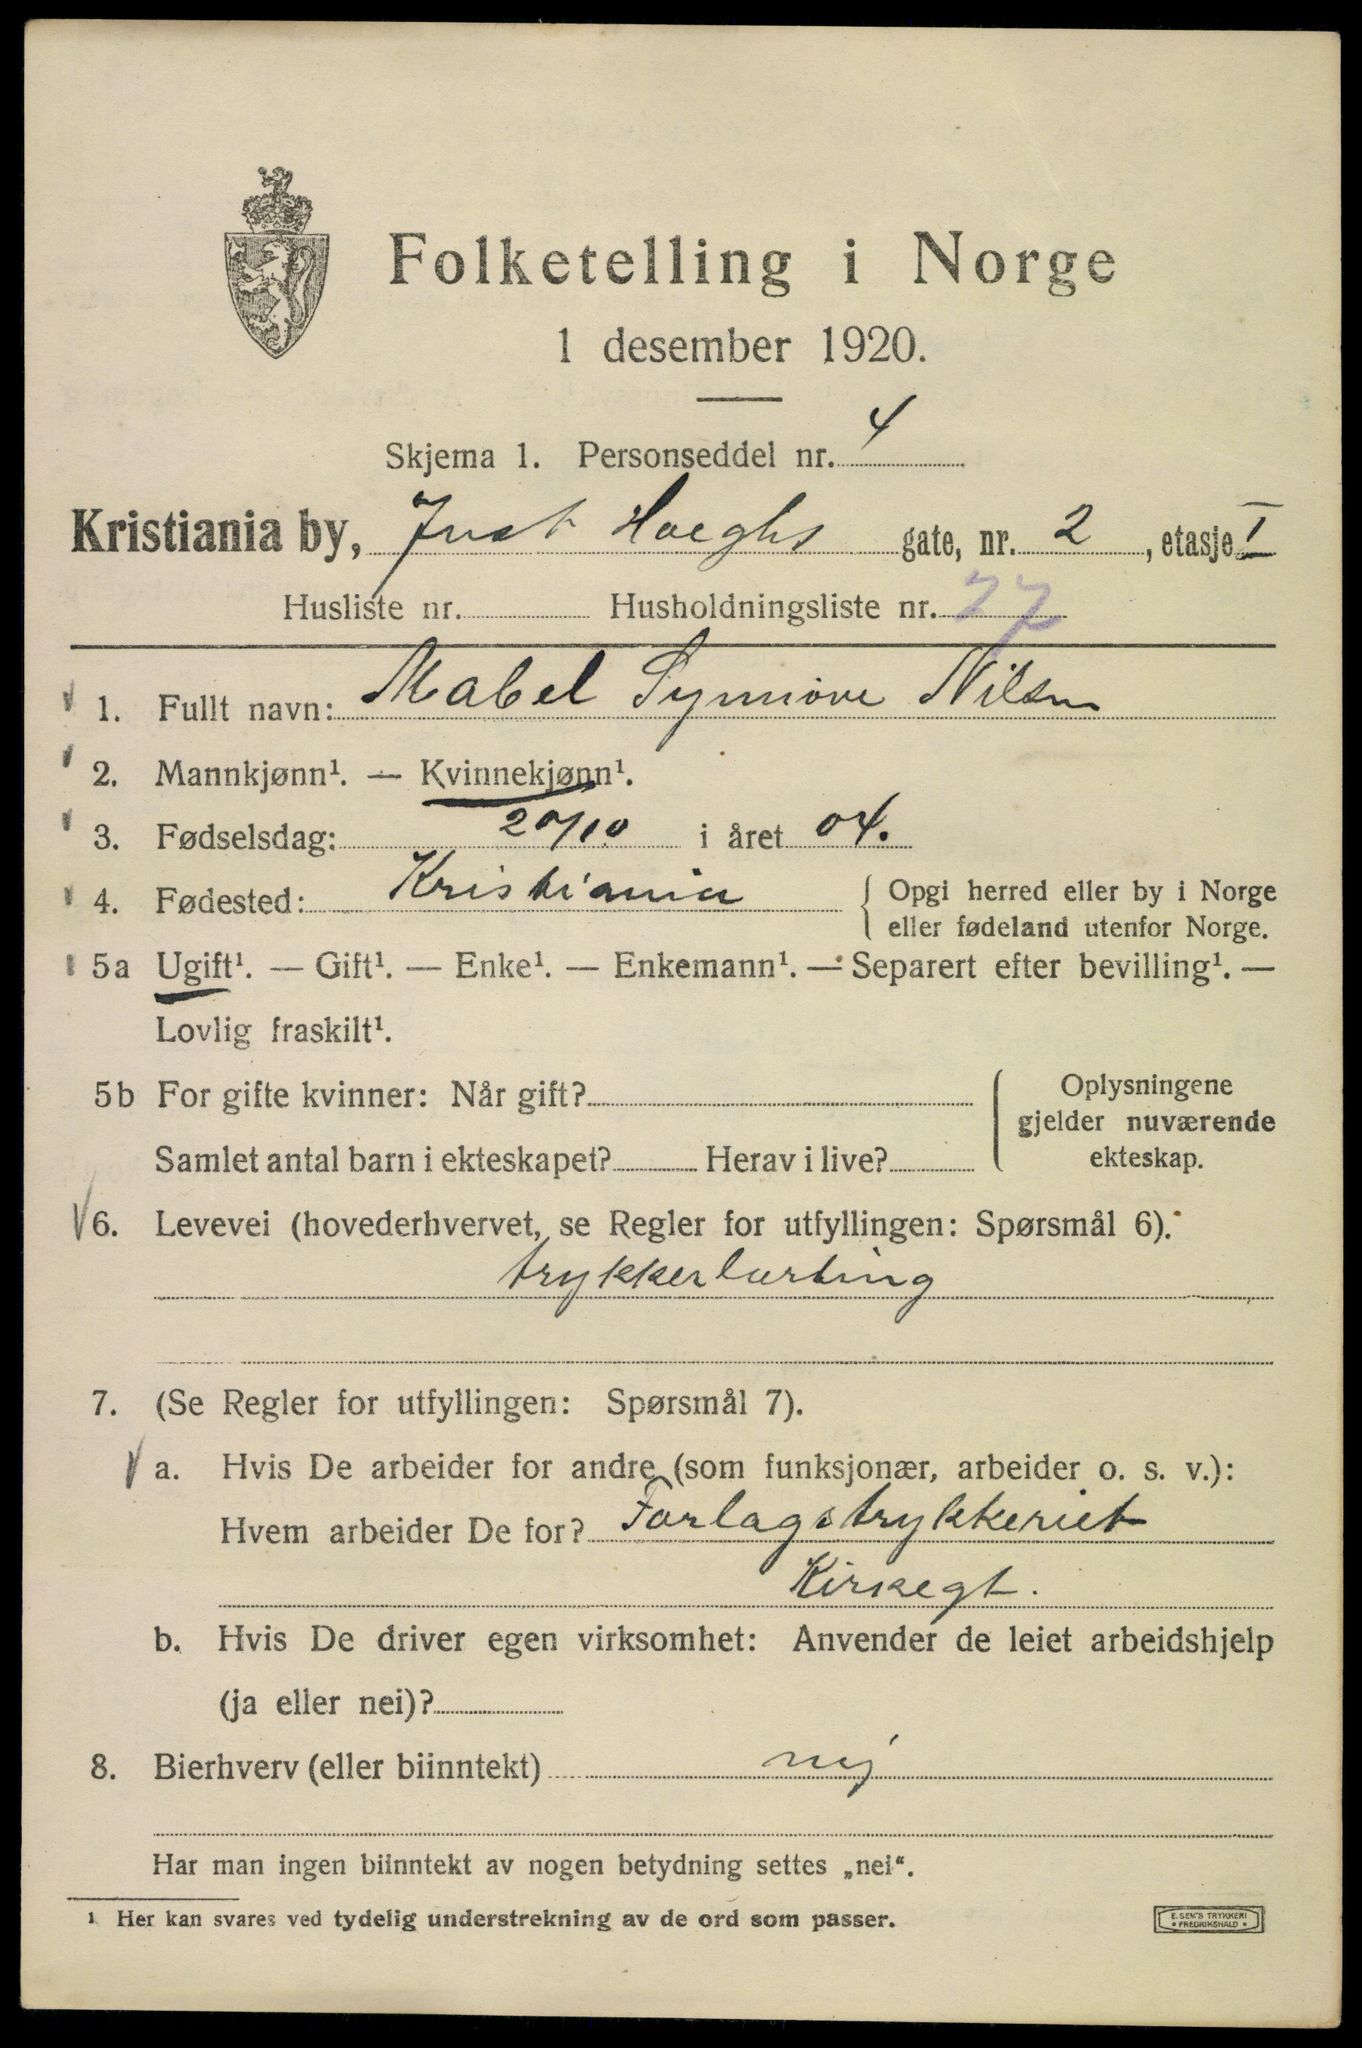 Folketelling i Norge
1 desember 1920.
Skjema 1. Personseddel nr. 4
Kristiania by, Just Hoeghs gate, nr. 2, etasje I
Husliste nr. Husholdningsliste nr. 27
1. Fullt navn: Mabel Synnøve Nilsen
2. Mannkjønn¹. — Kvinnekjønn¹.
3. Fødselsdag: 20/10 i året 04.
4. Fødested: Kristiania { Opgi herred eller by i Norge
eller fødeland utenfor Norge.
5a Ugift¹. — Gift¹. — Enke¹. — Enkemann¹. — Separert efter bevilling¹. —
Lovlig fraskilt¹.
5b For gifte kvinner: Når gift?
Samlet antal barn i ekteskapet? Herav i live?
Oplysningene
gjelder nuværende
ekteskap.
6. Levevei (hovederhvervet, se Regler for utfyllingen: Spørsmål 6).
trykkerlærling
7. (Se Regler for utfyllingen: Spørsmål 7).
a. Hvis De arbeider for andre (som funksjonær, arbeider o. s. v.):
Hvem arbeider De for? Forlagstrykkeriet
Kirkegt.
b. Hvis De driver egen virksomhet: Anvender de leiet arbeidshjelp
(ja eller nei)?
8. Bierhverv (eller biinntekt) nej
Har man ingen biinntekt av nogen betydning settes „nei“.
¹ Her kan svares ved tydelig understrekning av de ord som passer.
E. SEM'S TRYKKERI
FREDRIKSHALD